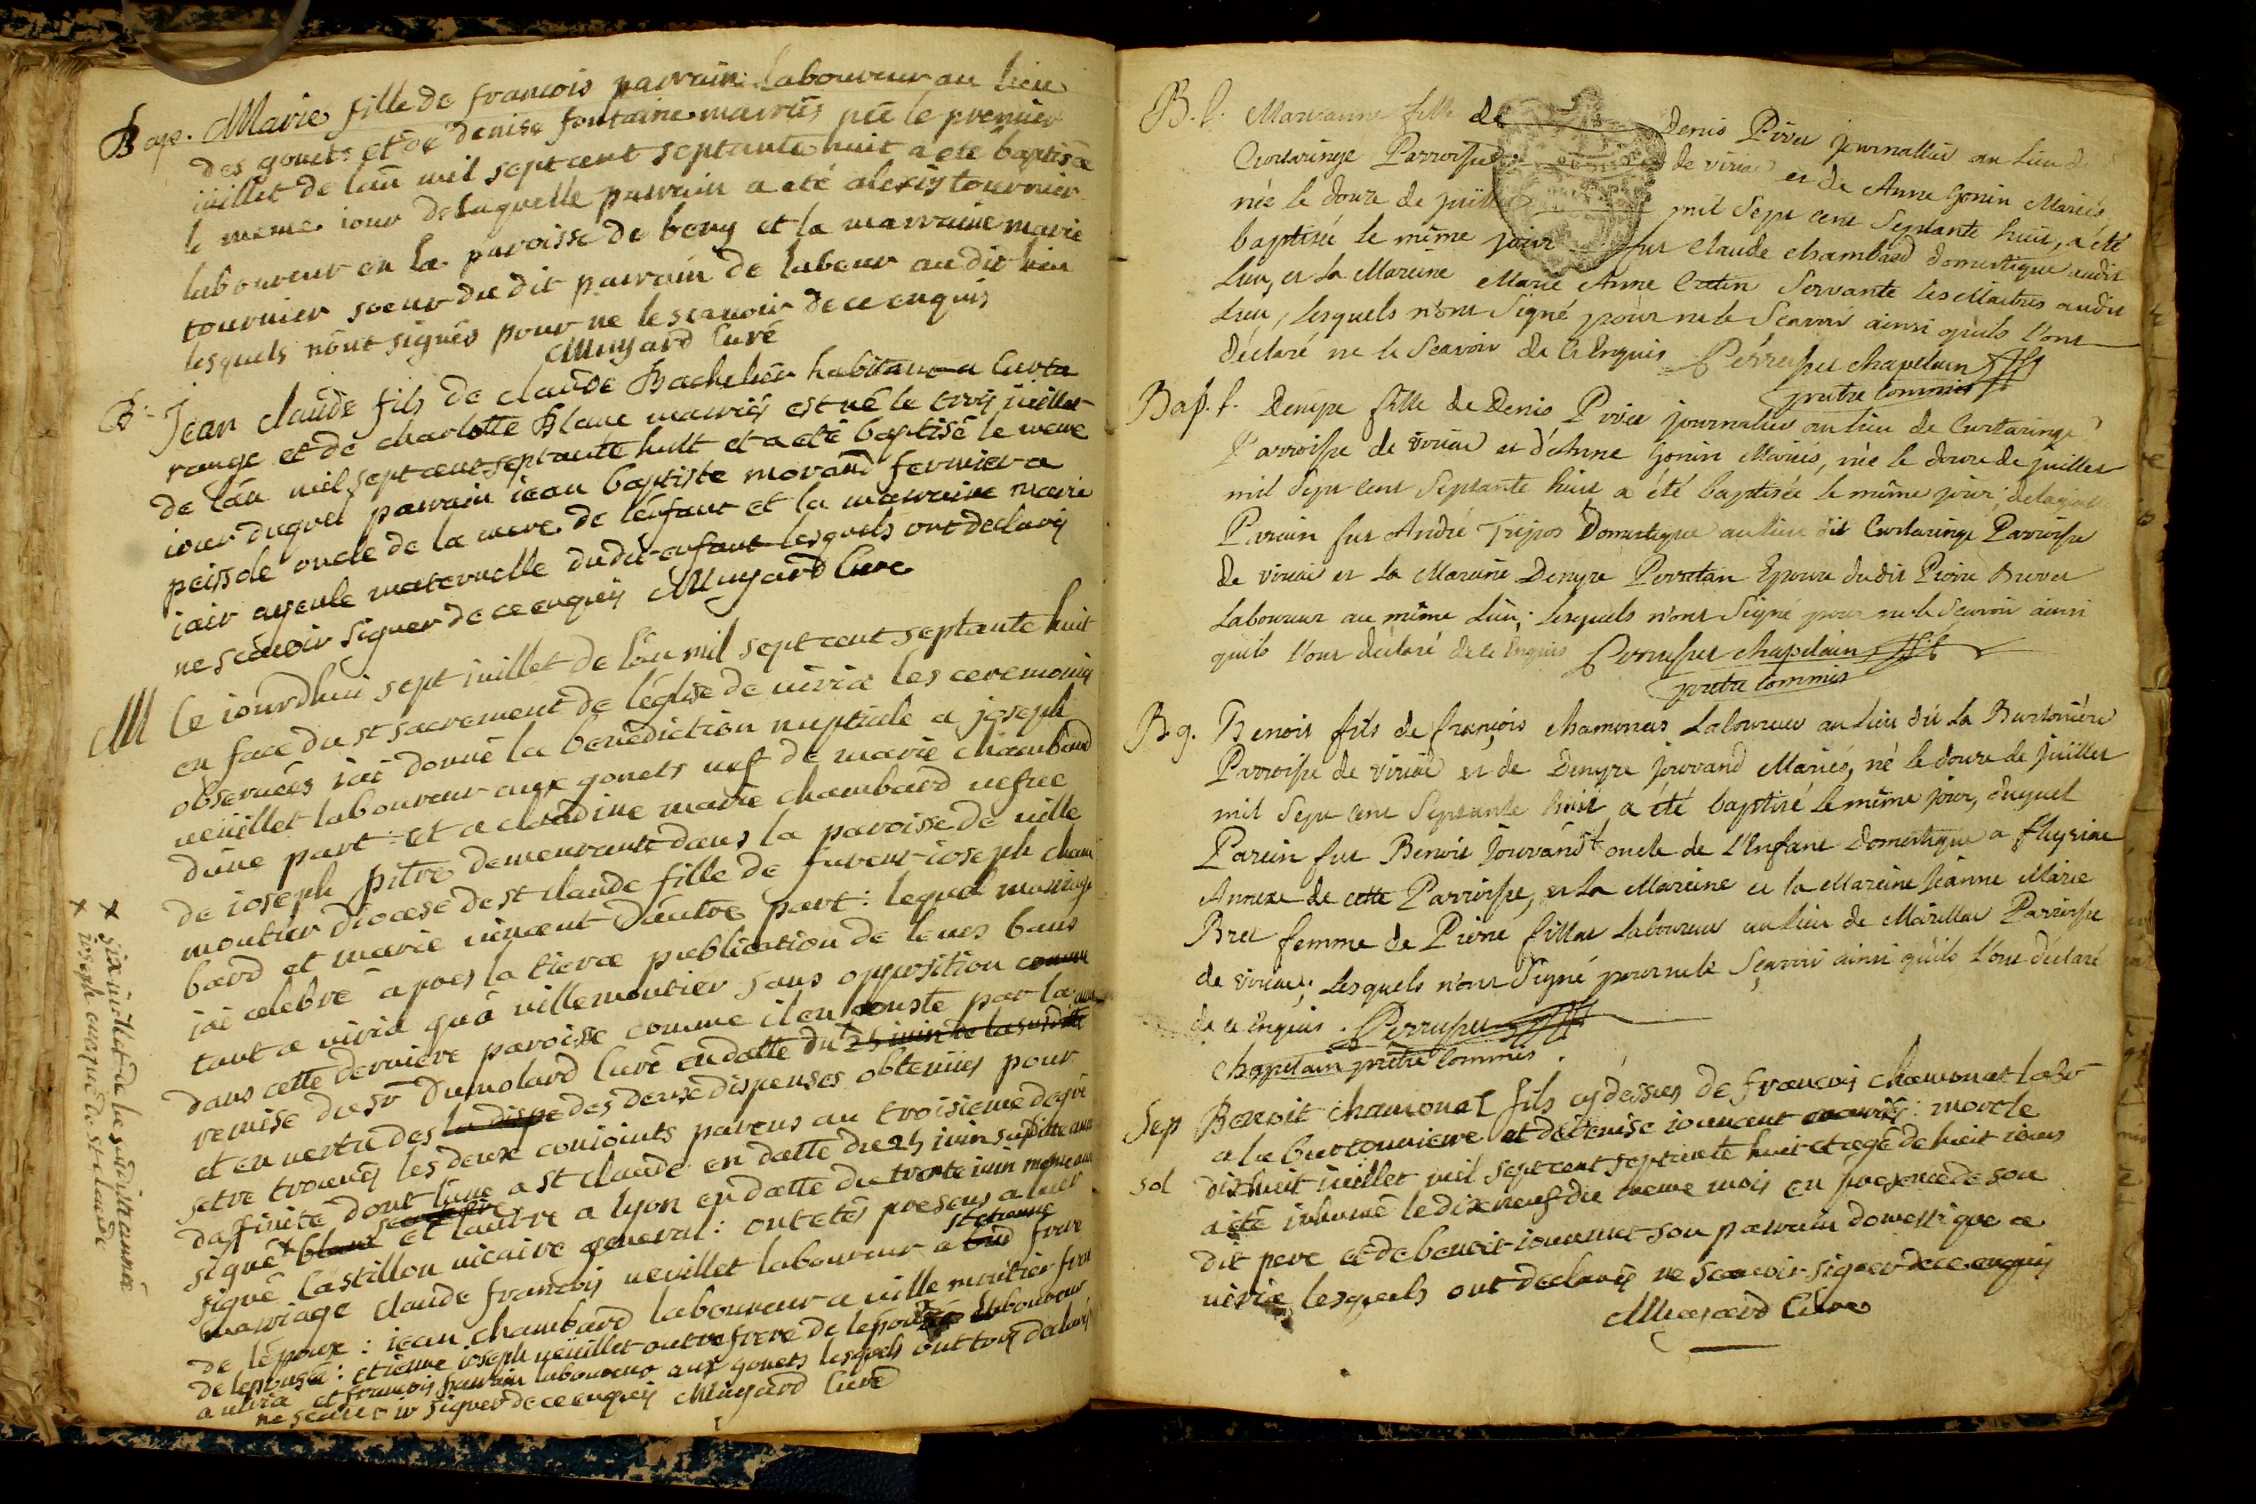 Bap. Marie fille de francois parrain laboureur au lieu
des gonets et de denise fontaine mariés née le premier
iuillet de lan mil sept cent septante huit a eté baptisée
le meme iour de laquelle parrain a eté alexis tournier
laboureur en la paroisse de beny et la marraine marie
tournier soeur du dit parrain de labeur au dit lieu
lesquels n'ont signés pour ne le scavoir de ce enquis
Muyard Curé
B. Jean claude fils de claude Bachelier habitant a Curta
range et de charlotte Blanc mariés est né le trois iuillet
de lan mil sept cent septante huit et a eté baptisé le meme
iour duquel parrain iean baptiste morand fermier a
peissole oncle de la mere de lenfant et la marraine marie
iair ayeule maternelle dudit enfant lesquels ont declarés
ne scavoir signer de ce enquis Muyard Curé
M Ce iourdhui sept iuillet de lan mil sept cent septante huit
en face du st sacrement de léglise de viria les ceremonies
observées iai donné la benediction nuptiale a joseph
neüillet laboureur aux gonets vef de marie chambard
dune part et a claudine marie chambard vefve
de ioseph pitre demeurante dans la paroisse de ville
moutier diocese de st claude fille de fuveur ioseph cham
bard et marie vincent dautre part : lequel mariage
iai celebré apres la tierce publication de leurs bans
tant a viria qu'a villemoutier sans opposition comme
dans cette derniere paroisse comme il en conste par la
remise du sr Dumolard Curé en datte du 25 iuin de la susdite
et en vertu des la dispe des deux dispenses obtenües pour
setre trouvés les deux conioints parens au troisieme degré
daffinité dont lune a st claude en datte du 25 iuin susditte
signé blanc et lautre a lyon en datte du trente iuin meme
signé Castillon vicaire general : ont etés presens a leur
mariage claude francois neuillet laboureur a st etienne frere
de lépoux : iean chambard laboureur a ville moutier frere
de lepouse : etienne ioseph neuillet autre frere de lépoux laboureur
a viria et francois parrain laboureur aux gonets lesquels ont tous declarés
ne scavoir signer de ce enquis Muyard Curé
x six iuillet de la susdit année
x ioseph eveque de st claude
B. f. Marianne fille de Denis Pivet journallier au lieu de
Curtaringe Parroisse de viriac et de Anne Gonin Mariés
née le douze de juillet mil sept cent septante huit, a été
baptisée le même jour fut Claude chambard domestique audit
Lieu, et la Mareine Marie Anne Cretin Servante les Maitres audit
Lieu, lesquels n'ont Signé pour ne le Scavoir ainsi qu'ils l'ont
déclaré ne le Scavoir de ce Enquis Perruset chapelain
prêtre commis
Bap. f. Denyse fille de Denis Pivet journalier au lieu de Curtaringe
Parroisse de viriac et d'Anne Gonin Mariés, née le douze de juillet
mil sept cent Septante huit a été baptisée le même jour; delaquelle
Parein fut André Tripos Domestique au lieu dit Curtaringe Parroisse
de viriac et la Mareine Denyse Pervetan Epouse dudit Pierre Buvet
Laboureur au même Lieu; lesquels n'ont Signé pour ne le Scavoir ainsi
qu'ils l'ont déclaré de ce Enquis Perruset chapelain
prêtre commis
B. g. Benoit fils de françois chamonas Laboureur au lieu dit La Burtonière
Parroisse de viriac et de Denyse Jouvand Mariés, né le douze de Juillet
mil Sept cent Septante huit a été baptisé le même jour, duquel
Parein fut Benoit Jouvand oncle de l'Enfant Domestique a fleyriat
Annexe de cette Parroisse, et la Mareine et la Mareine Jeanne Marie
Bret femme de Pierre fillat Laboureur au lieu de Marillat Parroisse
de viriac; Lesquels n'ont Signé pour ne le Sçavoir ainsi qu'ils l'ont déclaré
de ce Enquis. Perruset
chapelain prêtre commis.
Sep Benoit chamonat fils cy dessus de francois chamonat labr
a la burtonniere et de denise iouvent mariés : mort le
sol dixhuit iuillet mil sept cent septante huit et agé de huit iours
a été inhumé le dixneuf du meme mois en presence de son
dit pere et de benoit iouvent son parrain domestique a
viria lesquels ont declarés ne scavoir signer de ce enquis
Muyard Curé